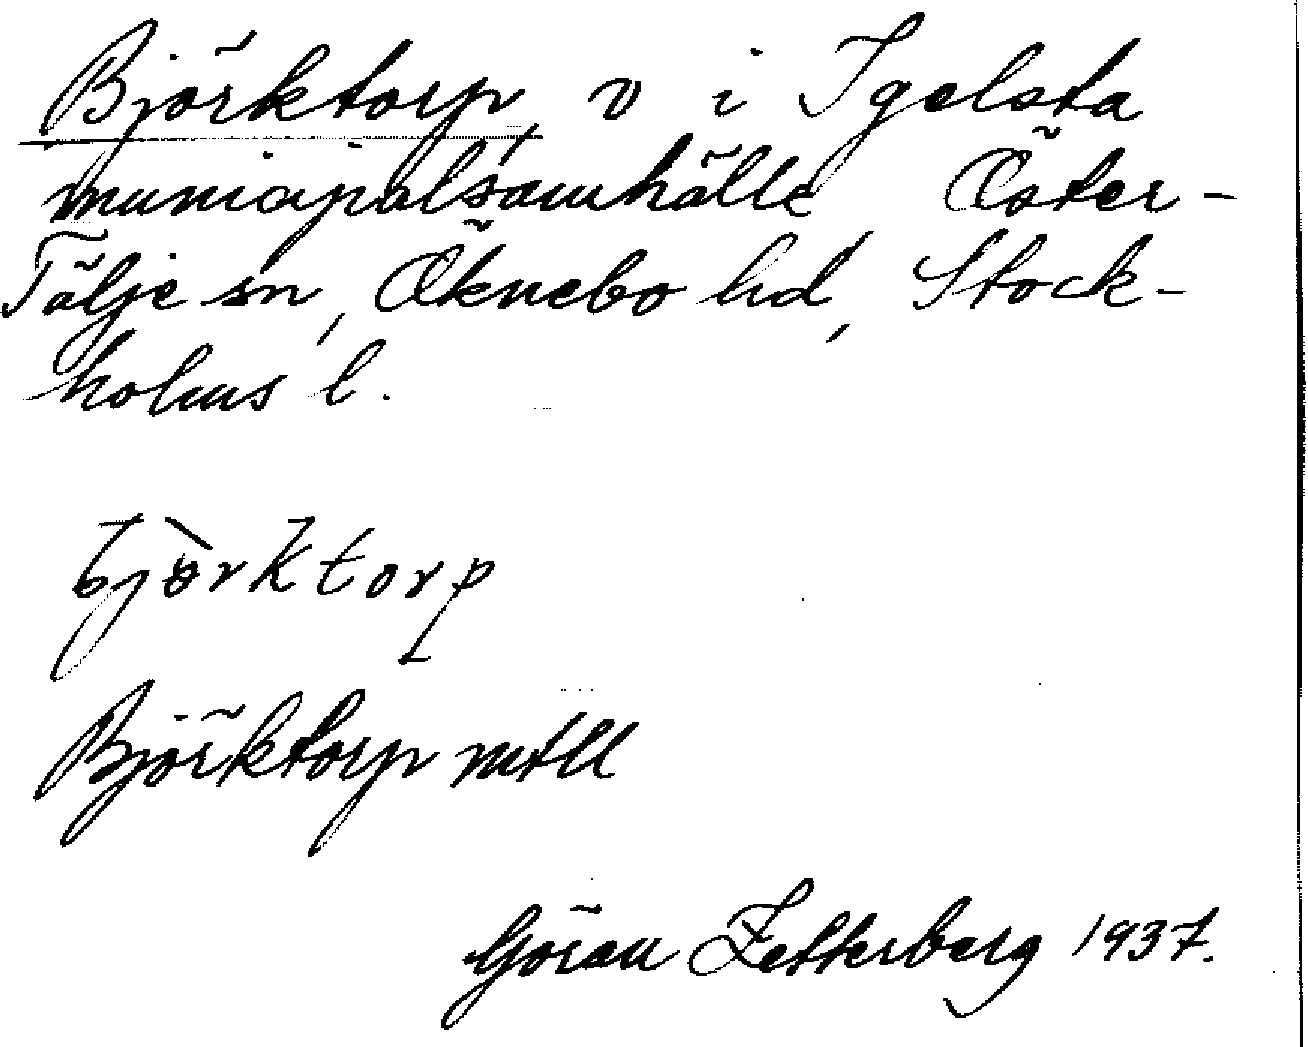 Björktorp, v i Igelsta
municipalsamhälle Öster-
Tälje sn, Öknebo hd, Stock-
holms l.
bjòrktorp
Björktorp mtll
Göran Zetterberg 1937.